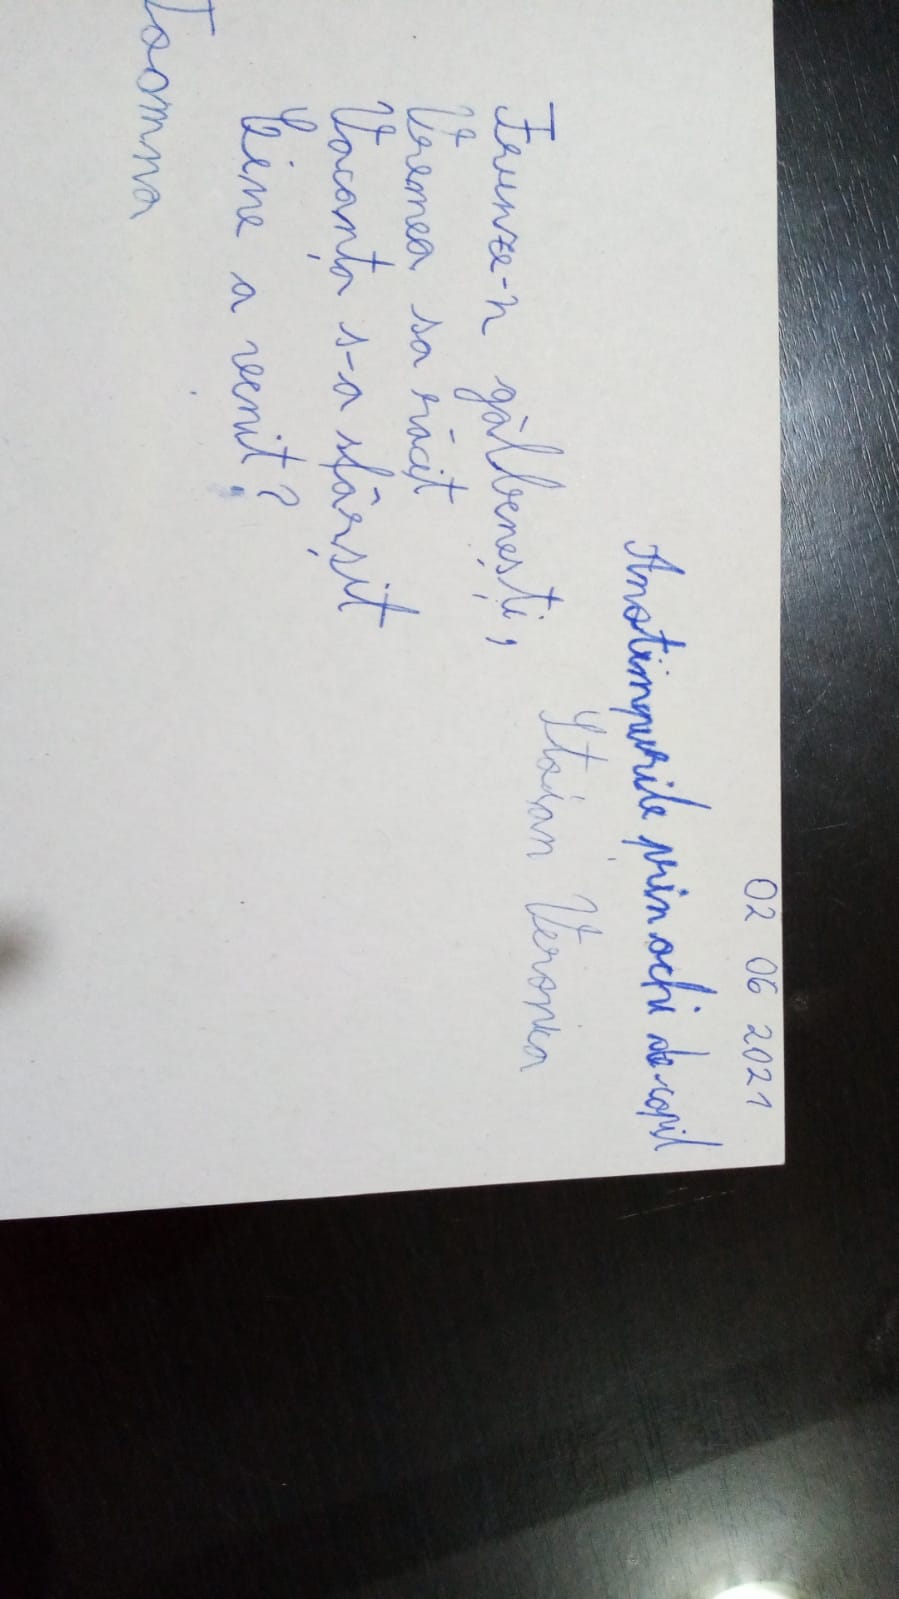 02 06 2021
Anotimpurile prin ochi de copil
Stoian Veronica
Frunze-n gălbenești,
Vremea sa răcit
Vacanța s-a sfârșit
Cine a venit?
Toamna